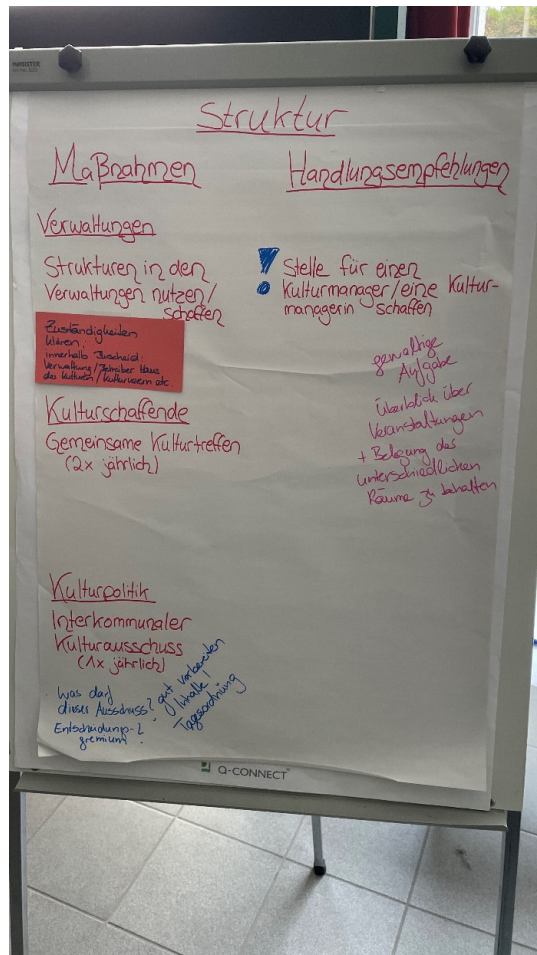 MAGISTER
Struktur
Maßnahmen
Handlungsempfehlungen
Verwaltungen
Strukturen in den
Verwaltungen nutzen/
schaffen
Zuständigkeiten
klären,
innerhalb
Verwaltung/Betreiber Haus
der Kulturen/Kulturverein etc.
Kulturschaffende
Gemeinsame Kulturtreffen
(2x jährlich)
Kulturpolitik
Interkommunaler
Kulturausschuss
(1x jährlich)
Was darf
dieser Ausschuss?
Entscheidungs-
gremium?
gut vorbereiten
Inhalte,
Tagesordnung
! Stelle für einen
Kulturmanager/eine Kultur-
managerin schaffen
gewaltige
Aufgabe
Überblick über
Veranstaltungen
+ Belegung der
unterschiedlichen
Räume zu behalten
Q-CONNECT